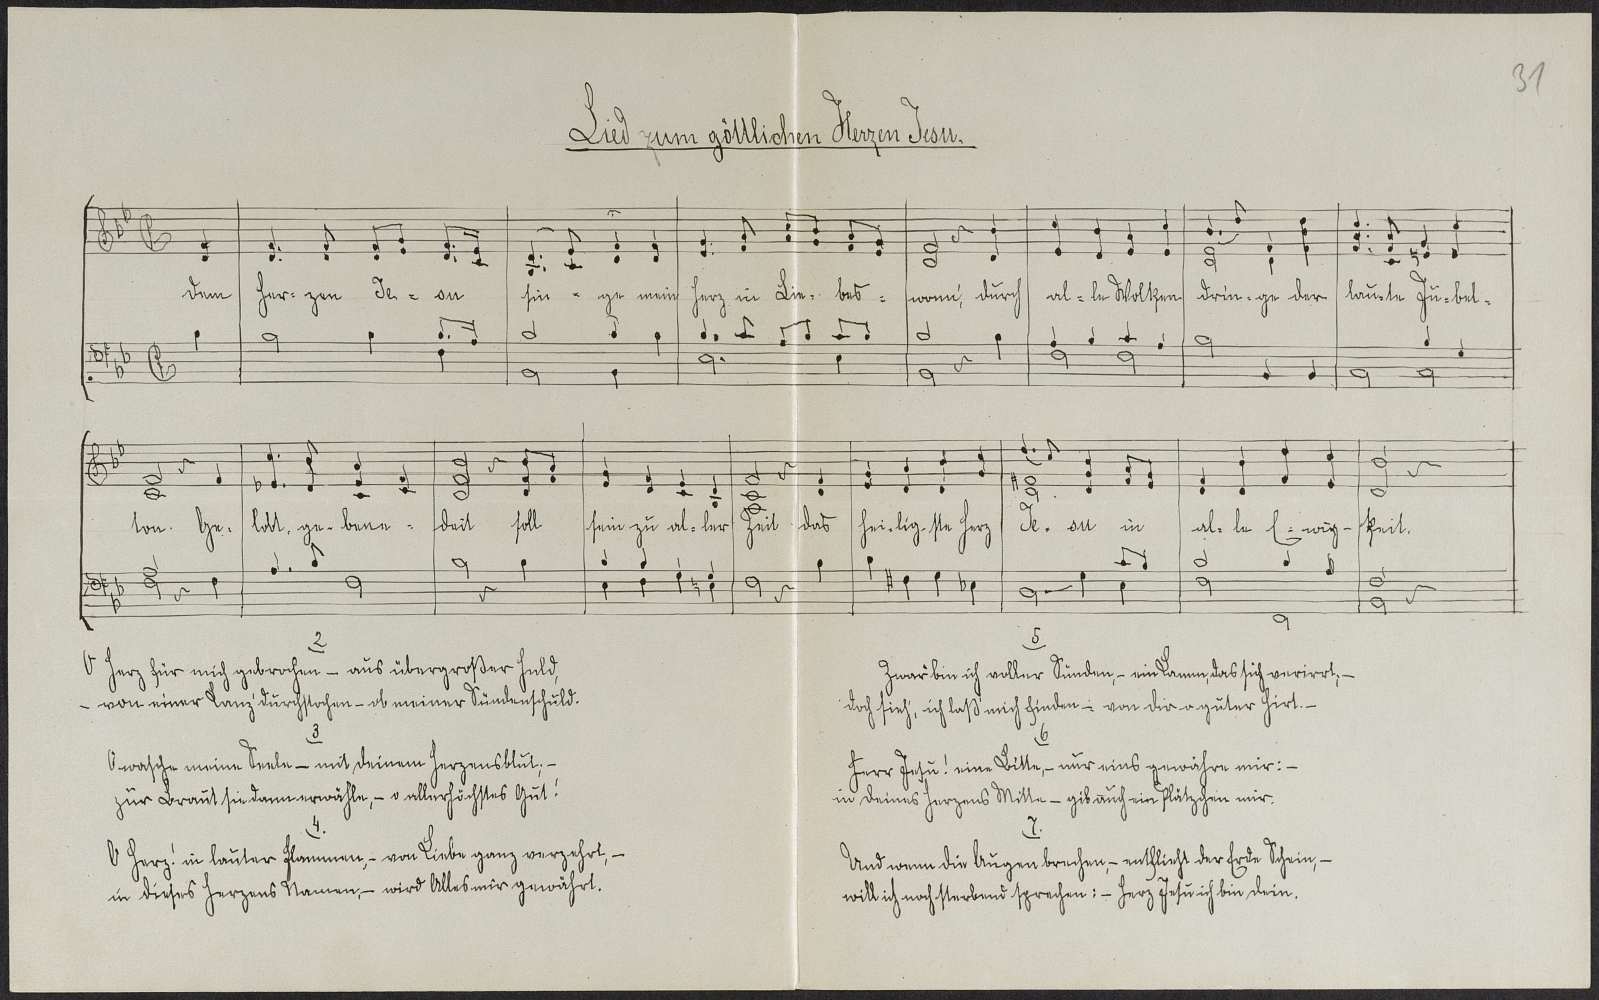 31
Lied zum göttlichen Herzen Jesu.
Dem Her-zen Je-su sin-ge mein Herz in Lie-bes-wonn', durch al-le Wolken drin-ge der lau-te Ju-bel-
ton. Ge-lobt, ge-bene-deit soll sein zu al-ler Zeit das hei-lig-ste Herz Je-su in al-le E-wig-keit.
2
O Herz für mich gebrochen – aus übergroßer Huld,
– von einer Lanz' durchstochen – ob meiner Sündenschuld.
3
O wasche meine Seele – mit deinem Herzensblut; –
zur Braut sie dann erwähle, – o allerhöchstes Gut!
4.
O Herz! in lauter Flammen, – von Liebe ganz verzehrt, –
in dieses Herzens Namen, – wird Alles mir gewährt.
5
Zwar bin ich voller Sünden, – ein Lamm, das sich verirrt; –
doch sieh', ich laß' mich finden – von dir o guter Hirt. –
6
Herr Jesu! eine Bitte, – nur eins gewähre mir: –
in deines Herzens Mitte – gib auch ein Plätzchen mir.
7.
Und wenn die Augen brechen, – entflieht der Erde Schein, –
will ich noch sterbend sprechen: – Herz Jesu ich bin dein.